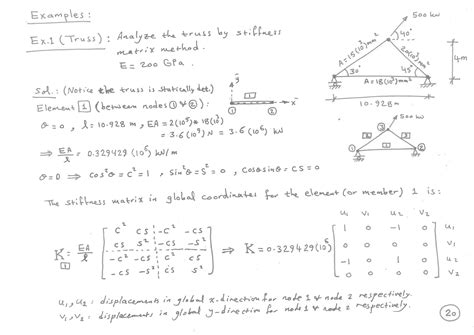 Examples:
Ex.1 (Truss): Analyze the truss by stiffness
matrix method.
E = 200 GPa.
500 kN
40°
A=15(10³)mm²
20(10³)mm²
4m
30°
45°
A=18(10³)mm²
10.928 m
Sol.: (Notice the truss is statically det.)
Element 1 (between nodes ① & ②):
θ = 0, l = 10.928 m, EA = 2(10⁸)*18(10³)
= 3.6(10⁹) N = 3.6(10⁶) kN
ȳ
1
x̄
① ②
500 kN
③
① ②
⇒ EA/l = 0.329429 (10⁶) kN/m
θ = 0 ⇒ cos²θ = C² = 1, sin²θ = S² = 0, cosθ sinθ = CS = 0
The stiffness matrix in global coordinates for the element (or member) 1 is:
u₁ v₁ u₂ v₂
K = EA/l [ C² CS -C² -CS ⇒ K = 0.329429(10⁶) [ 1 0 -1 0 ] u₁
CS S² -CS -S² 0 0 0 0 v₁
-C² -CS C² CS -1 0 1 0 u₂
-CS -S² CS S² ] 0 0 0 0 v₂
1
u₁, u₂: displacements in global x-direction for node 1 & node 2 respectively.
v₁, v₂: displacements in global y-direction for node 1 & node 2 respectively.
20